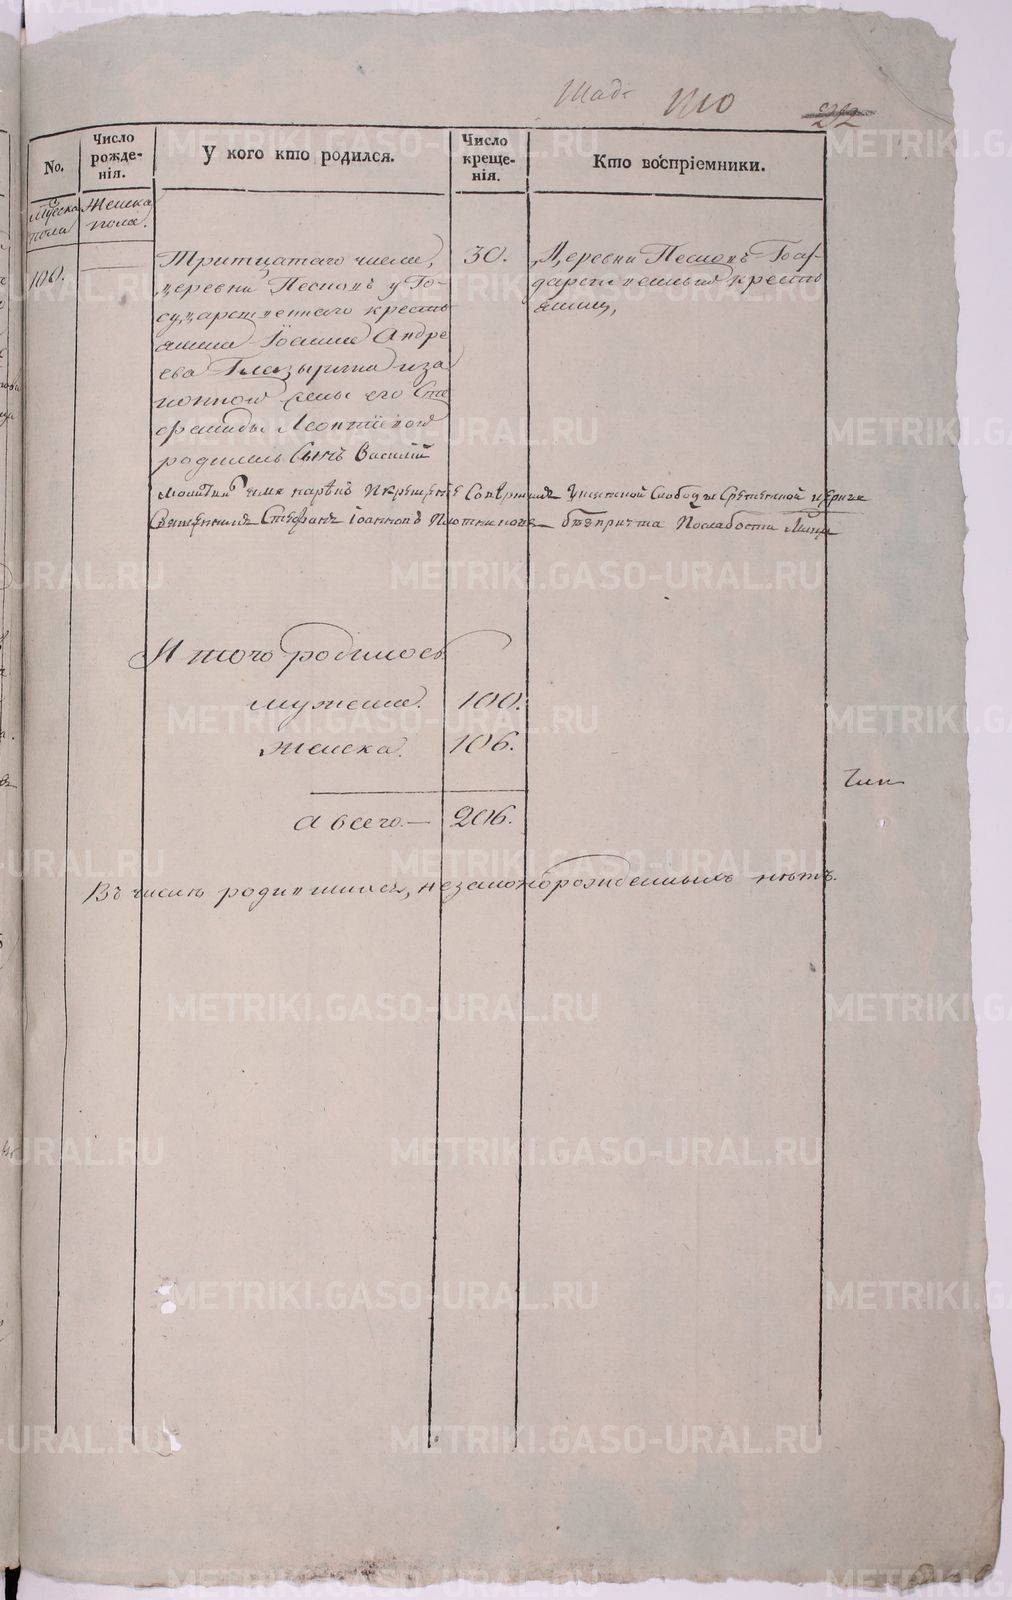 No.
Число рожде-нія.
У кого кто родился.
Число креще-нія.
Кто воспріемники.
Мужска пола
Женска пола.
100.
Тритцатаго числа,
деревни Песковъ у Го-
сударственнаго кресть
янина Іоанна Андре
ева Глазырина и за
конной жены его Сте
фаниды Леонтіевой
родился Сынъ Василій
30.
Деревни Песковъ Госу-
дарственный кресть
янинъ,
Молитвил имя нарекъ И крещеніе Совершилъ Слободы Срѣтенской церкви
Священникъ Стефанъ Іоанновъ Плотниковъ
И того родилось
мужска. 100.
женска. 106.
а всего.— 206.
Въ числѣ родившихся, незаконорожденныхъ нѣтъ.
METRIKI.GASO-URAL.RU